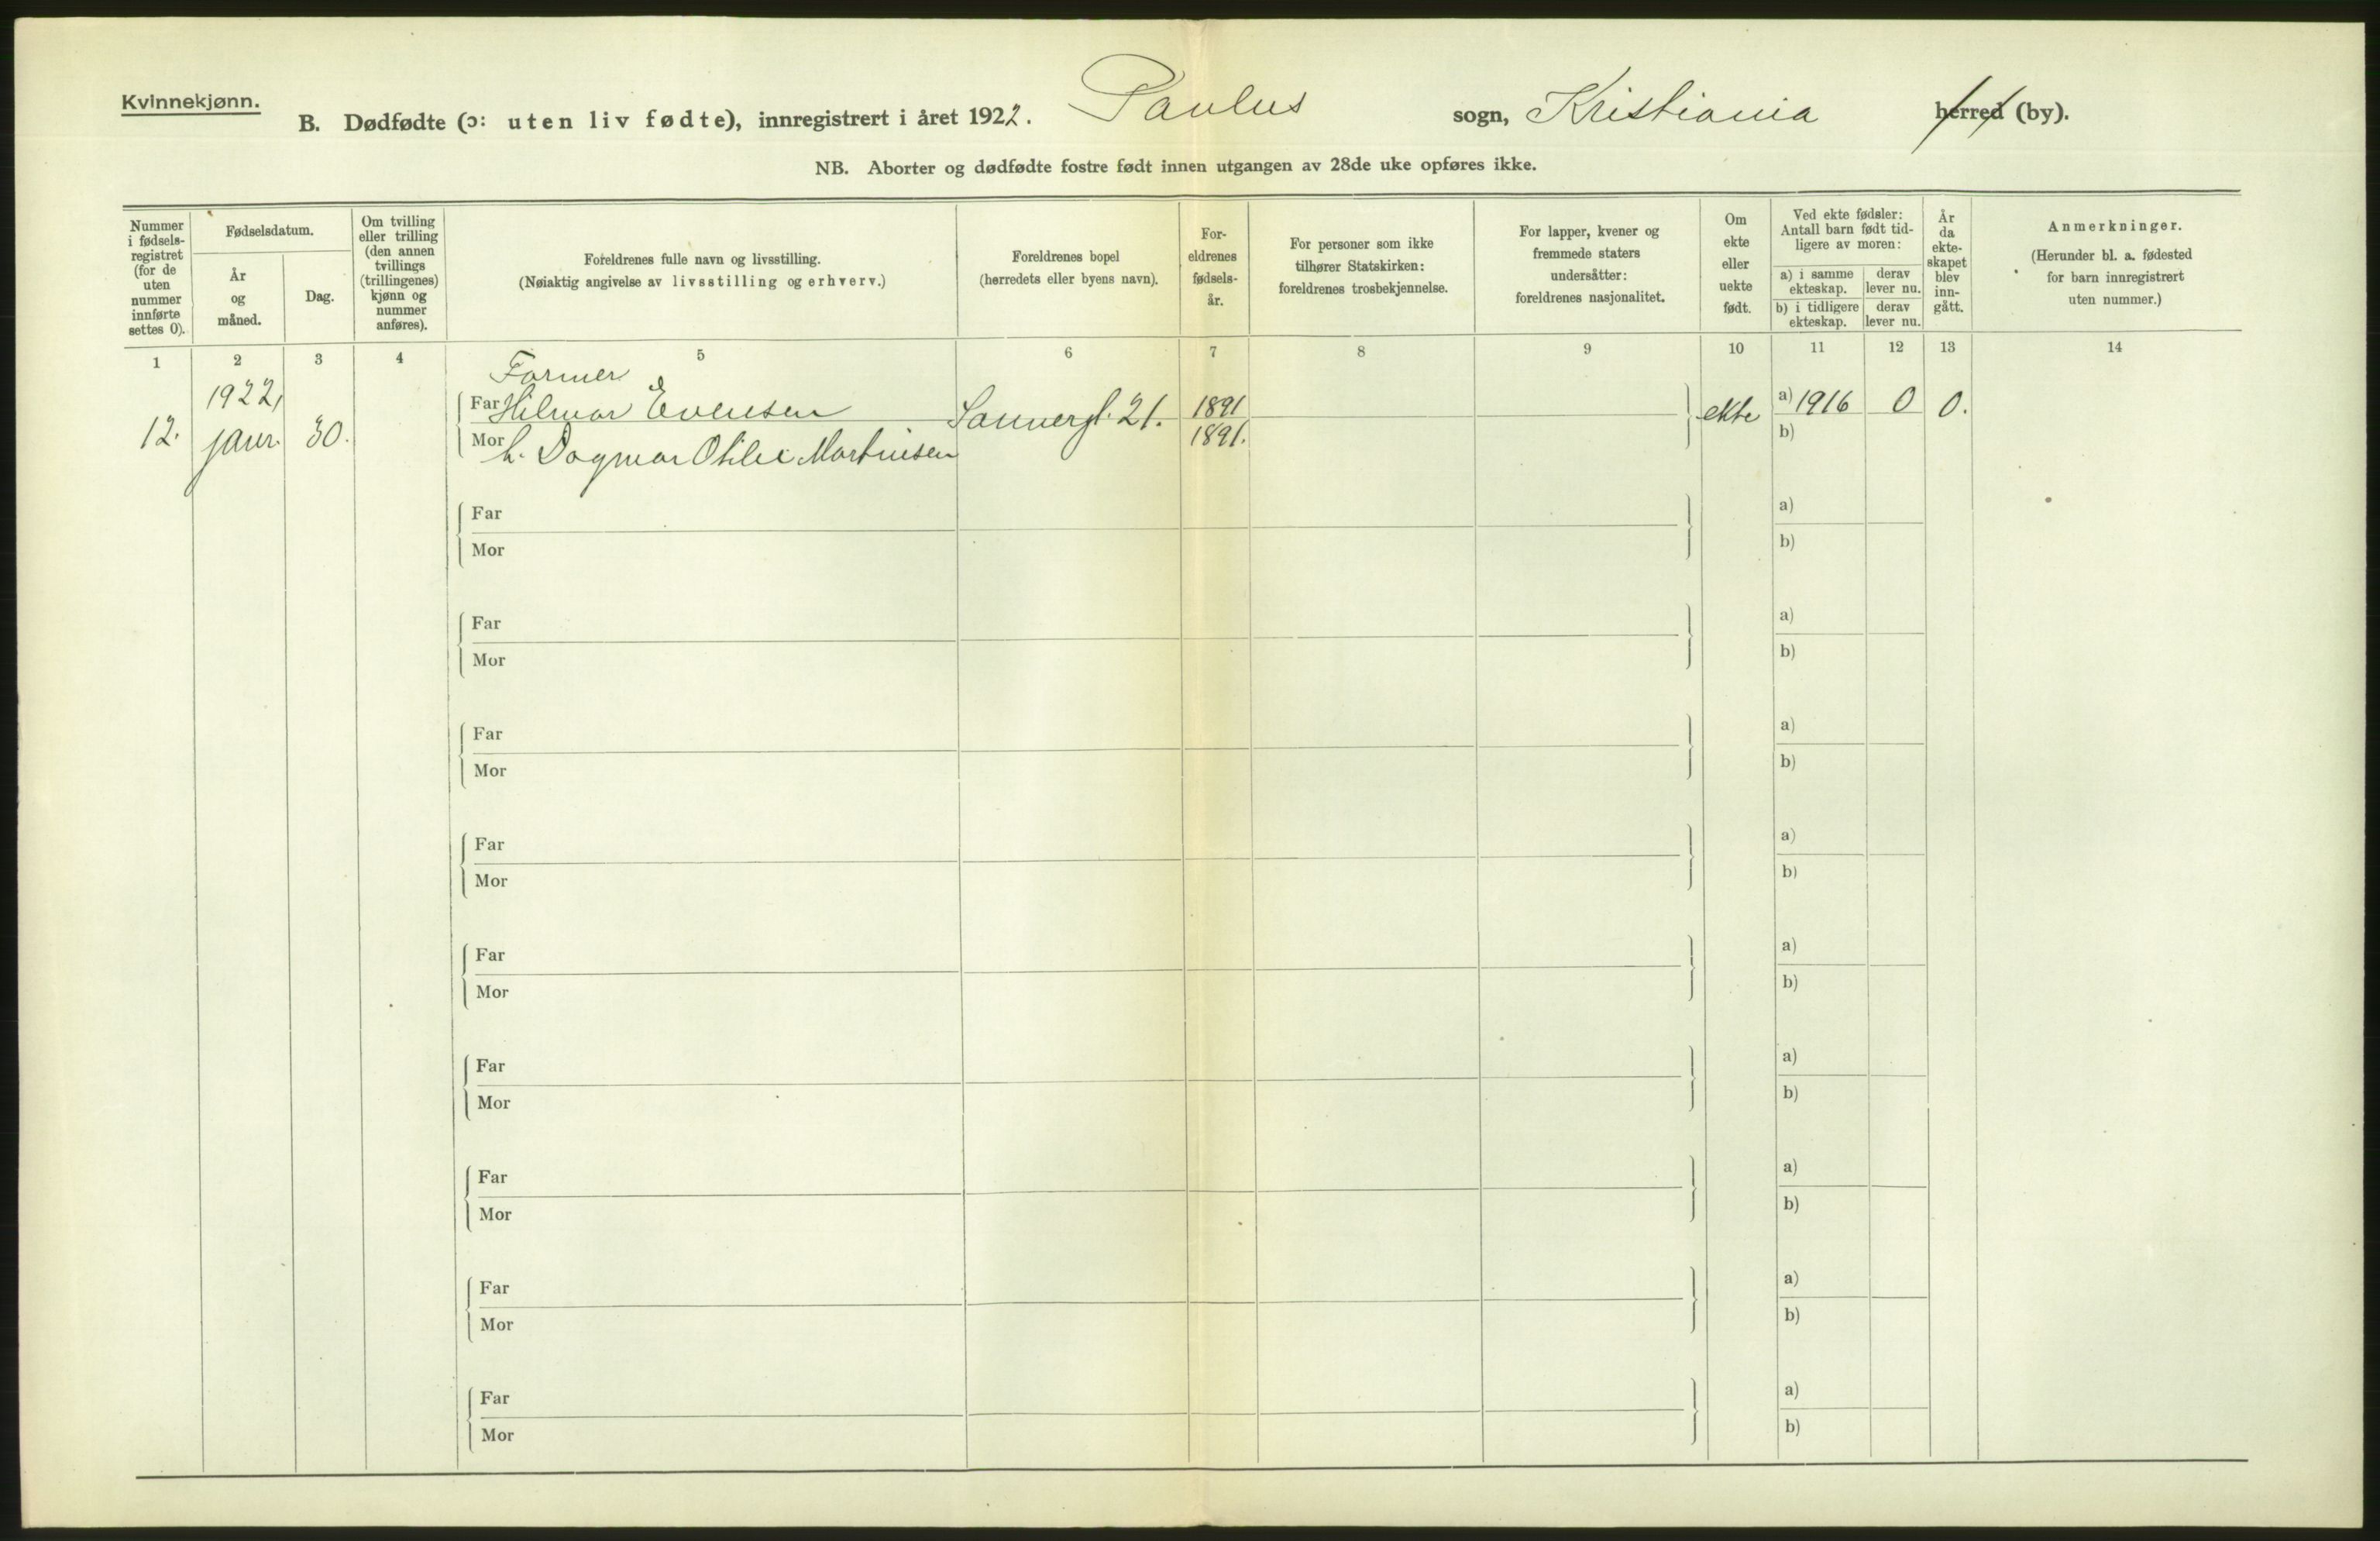 Kvinnekjønn.
B. Dødfødte (ɔ: uten liv fødte), innregistrert i året 1922. Paulus sogn, Kristiania herred (by).
NB. Aborter og dødfødte fostre født innen utgangen av 28de uke opføres ikke.
Nummer
i fødsels-
registret
(for de
uten
nummer
innførte
settes 0).
Fødselsdatum.
År
og
måned.
Dag.
Om tvilling
eller trilling
(den annen
tvillings
(trillingenes)
kjønn og
nummer
anføres).
Foreldrenes fulle navn og livsstilling.
(Nøiaktig angivelse av livsstilling og erhverv.)
Foreldrenes bopel
(herredets eller byens navn).
For-
eldrenes
fødsels-
år.
For personer som ikke
tilhører Statskirken:
foreldrenes trosbekjennelse.
For lapper, kvener og
fremmede staters
undersåtter:
foreldrenes nasjonalitet.
Om
ekte
eller
uekte
født.
Ved ekte fødsler:
Antall barn født tid-
ligere av moren:
a) i samme
ekteskap.
derav
lever nu.
b) i tidligere
ekteskap.
derav
lever nu.
År
da
ekte-
skapet
blev
inn-
gått.
Anmerkninger.
(Herunder bl. a. fødested
for barn innregistrert
uten nummer.)
1 2 3 4 5 6 7 8 9 10 11 12 13 14
Former
1922,
Far Hilmar Evensen Sannergt. 21. 1891 ekte a) 1916 0 0.
12. janr. 30.
Mor h. Dagmar Otilie Martinsen 1891. b)
Far a)
Mor b)
Far a)
Mor b)
Far a)
Mor b)
Far a)
Mor b)
Far a)
Mor b)
Far a)
Mor b)
Far a)
Mor b)
Far a)
Mor b)
Far a)
Mor b)